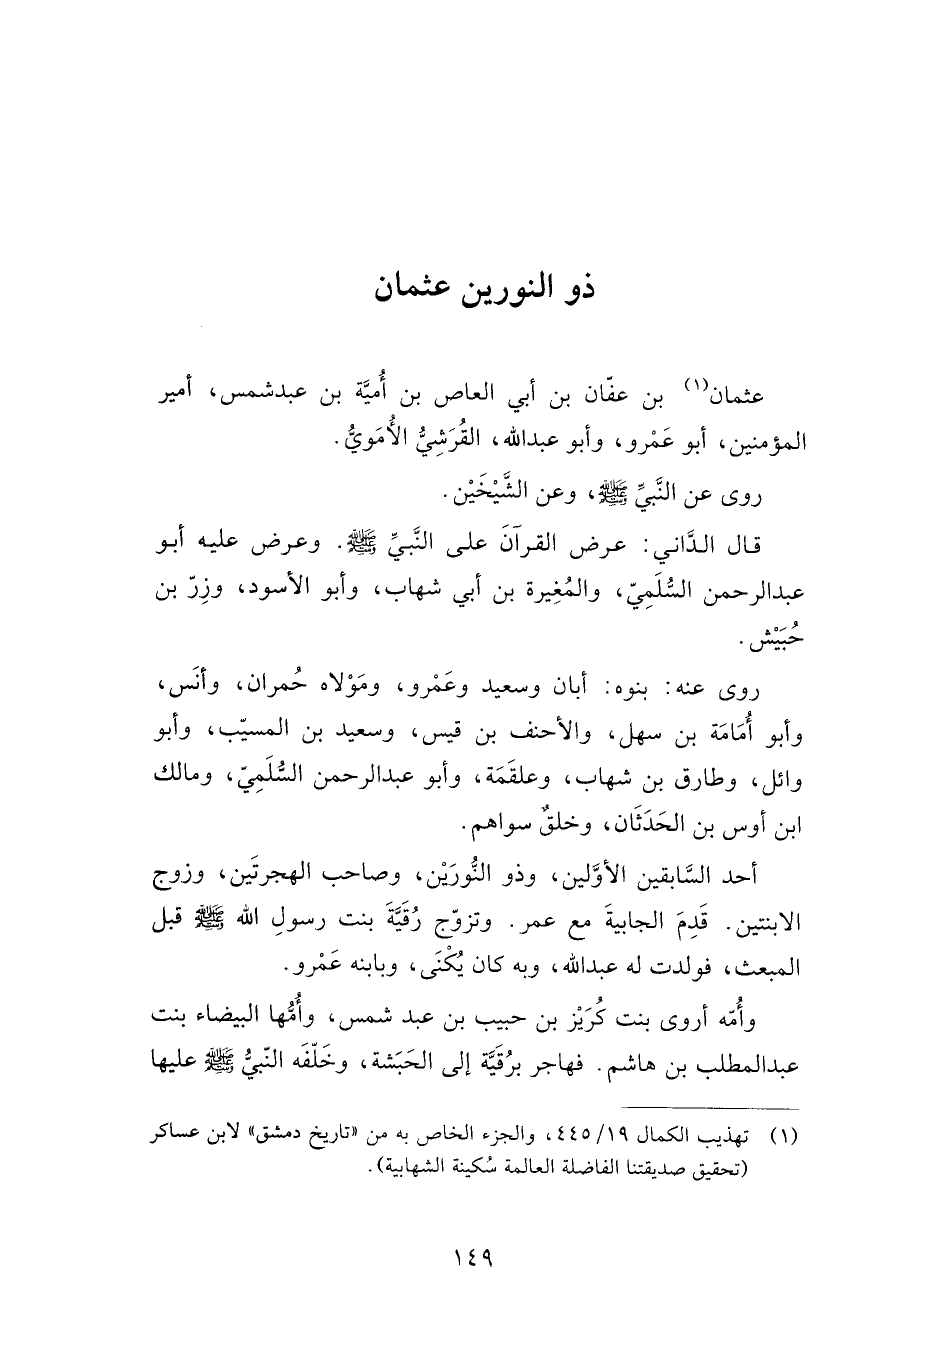 ذو النورين عثمان
عثمان(١) بن عفّان بن أبي العاص بن أُميَّة بن عبدشمس، أمير
المؤمنين، أبو عَمْرو، وأبو عبدالله، القُرَشِيُّ الأُمَويُّ.
روى عن النَّبيِّ ﷺ، وعن الشَّيْخَيْن.
قال الدَّاني: عرض القرآنَ على النَّبيِّ ﷺ. وعرض عليه أبو
عبدالرحمن السُّلَمِيّ، والمُغِيرة بن أبي شهاب، وأبو الأسود، وزِرّ بن
حُبَيْش.
روى عنه: بنوه: أبان وسعيد وعَمْرو، ومَوْلاه حُمران، وأنَس،
وأبو أُمَامَة بن سهل، والأحنف بن قيس، وسعيد بن المسيّب، وأبو
وائل، وطارق بن شهاب، وعلقَمَة، وأبو عبدالرحمن السُّلَمِيّ، ومالك
ابن أوس بن الحَدَثَان، وخلقٌ سواهم.
أحد السَّابقين الأوَّلين، وذو النُّورَيْن، وصاحب الهجرتَين، وزوج
الابنتين. قَدِمَ الجابيةَ مع عمر. وتزوّج رُقَيَّةَ بنت رسولِ الله ﷺ قبل
المبعث، فولدت له عبدالله، وبه كان يُكْنَى، وبابنه عَمْرو.
وأُمّه أروى بنت كُرَيْز بن حبيب بن عبد شمس، وأُمُّها البيضاء بنت
عبدالمطلب بن هاشم. فهاجر برُقَيَّة إلى الحَبَشة، وخَلّفَه النّبيُّ ﷺ عليها
(١) تهذيب الكمال ١٩/ ٤٤٥، والجزء الخاص به من «تاريخ دمشق» لابن عساكر
(تحقيق صديقتنا الفاضلة العالمة سُكينة الشهابية).
١٤٩